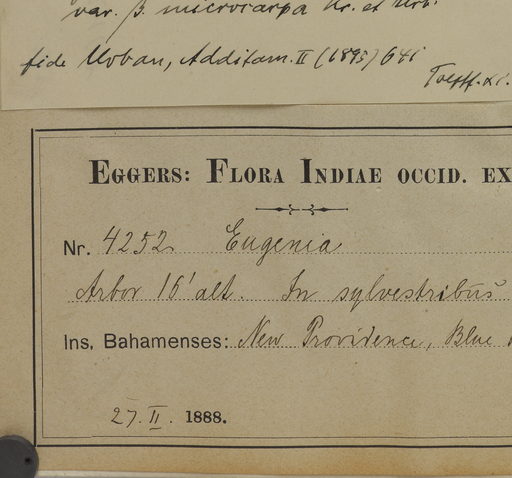 var. β. microcarpa Kr. et Urb.
fide Urban, Additam. II (1895) 641
EGGERS: FLORA INDIAE OCCID. EX
Nr. 4252 Eugenia
Arbor 15' alt. In sylvestribus
Ins. Bahamenses: New Providence, Blue
27. II. 1888.